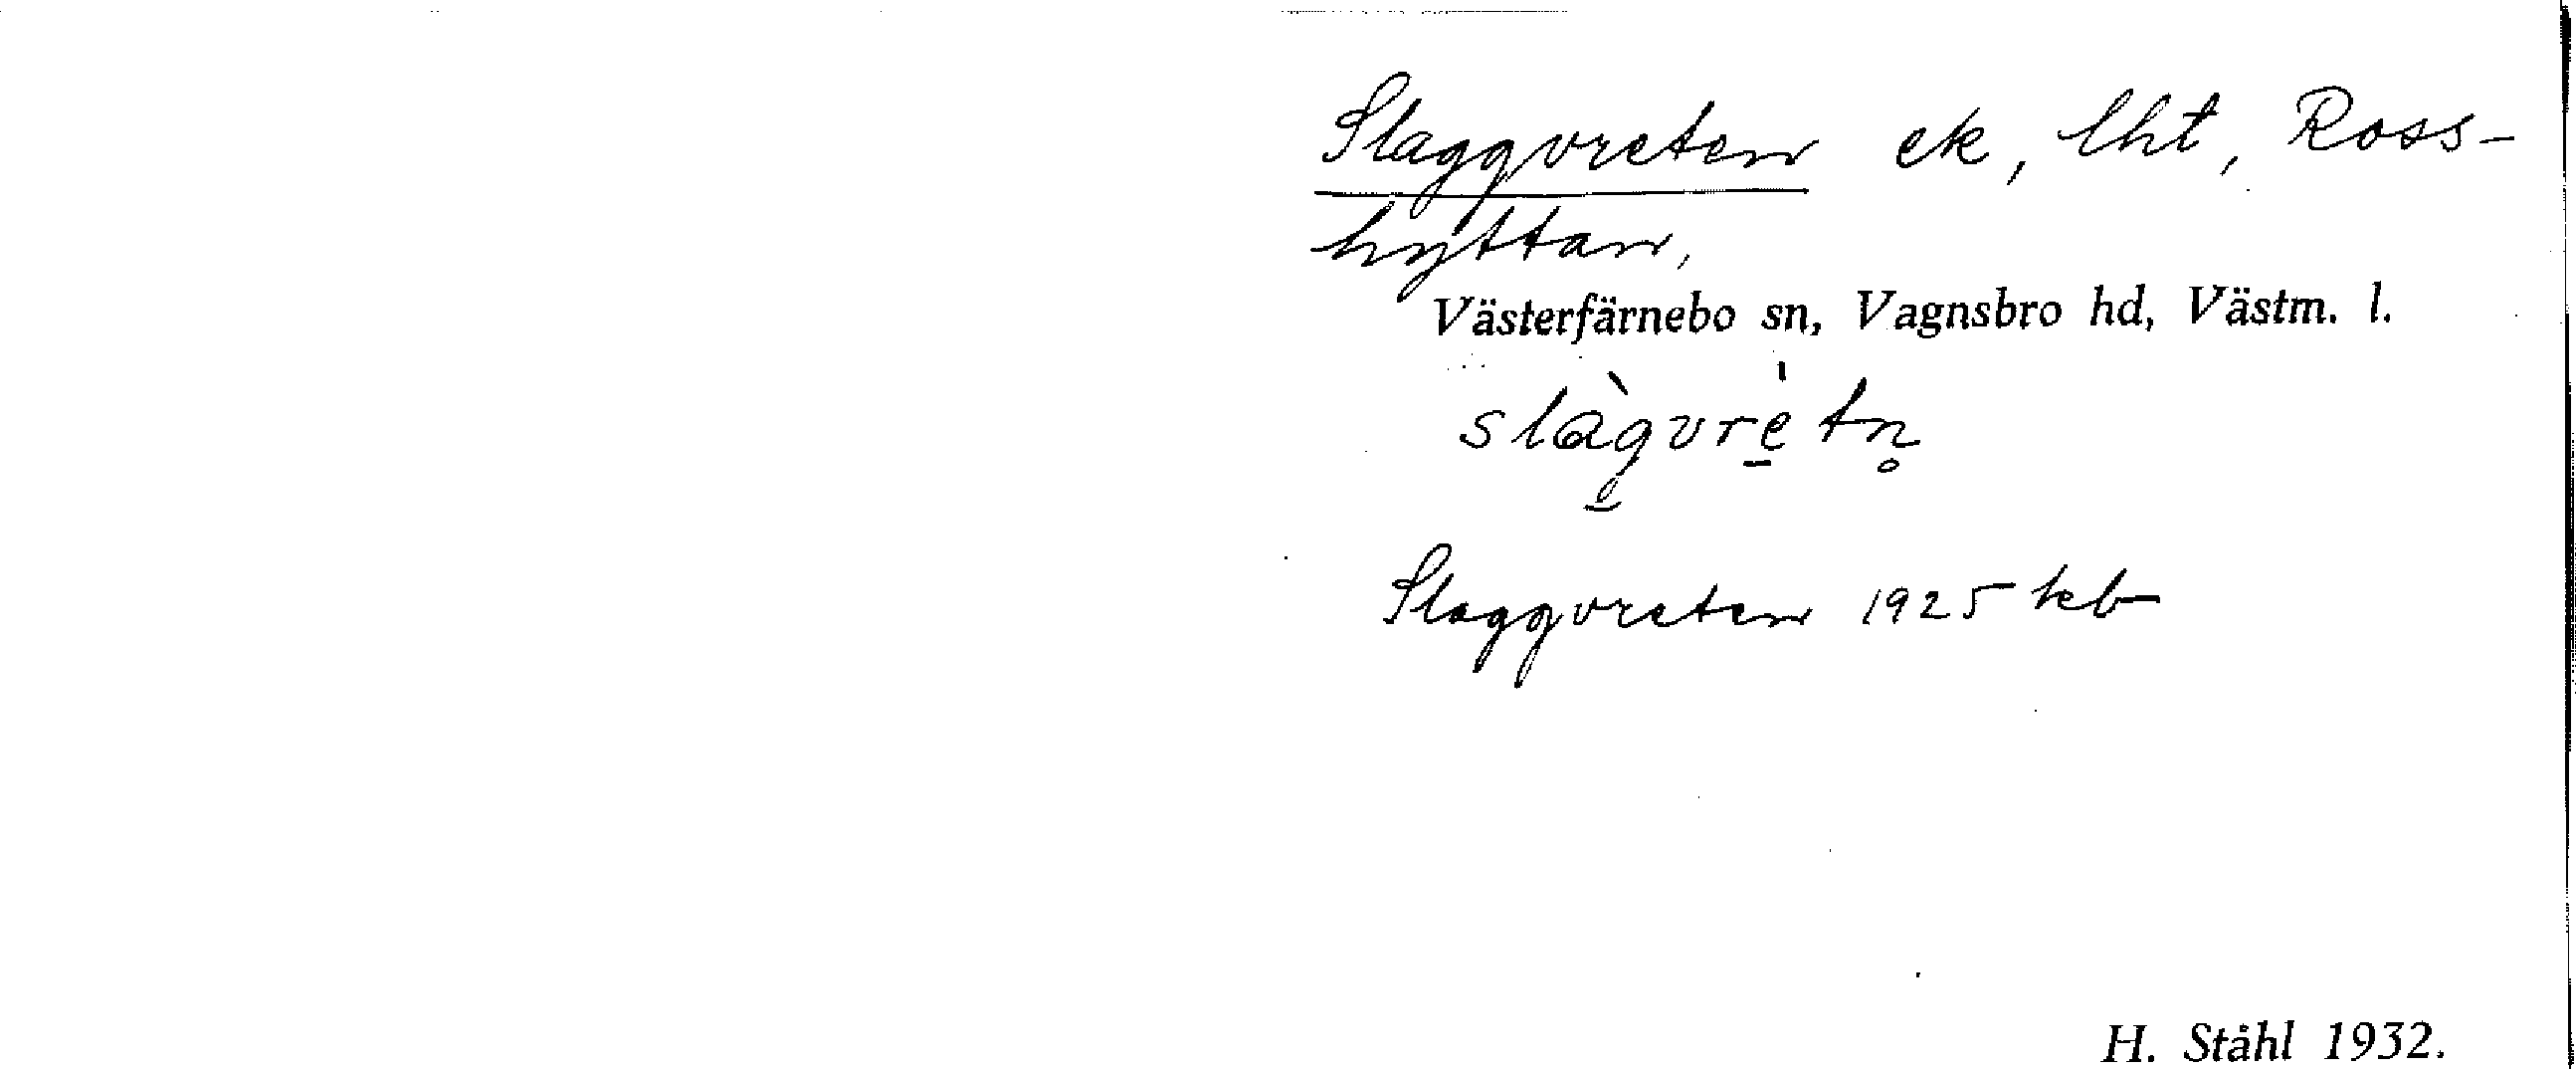 Slaggvreten ek, lht, Ross-
hyttan,
Västerfärnebo sn, Vagnsbro hd, Västm. l.
slàgvrè̱tn̥
Slaggvreten 1925 keb
H. Ståhl 1932.